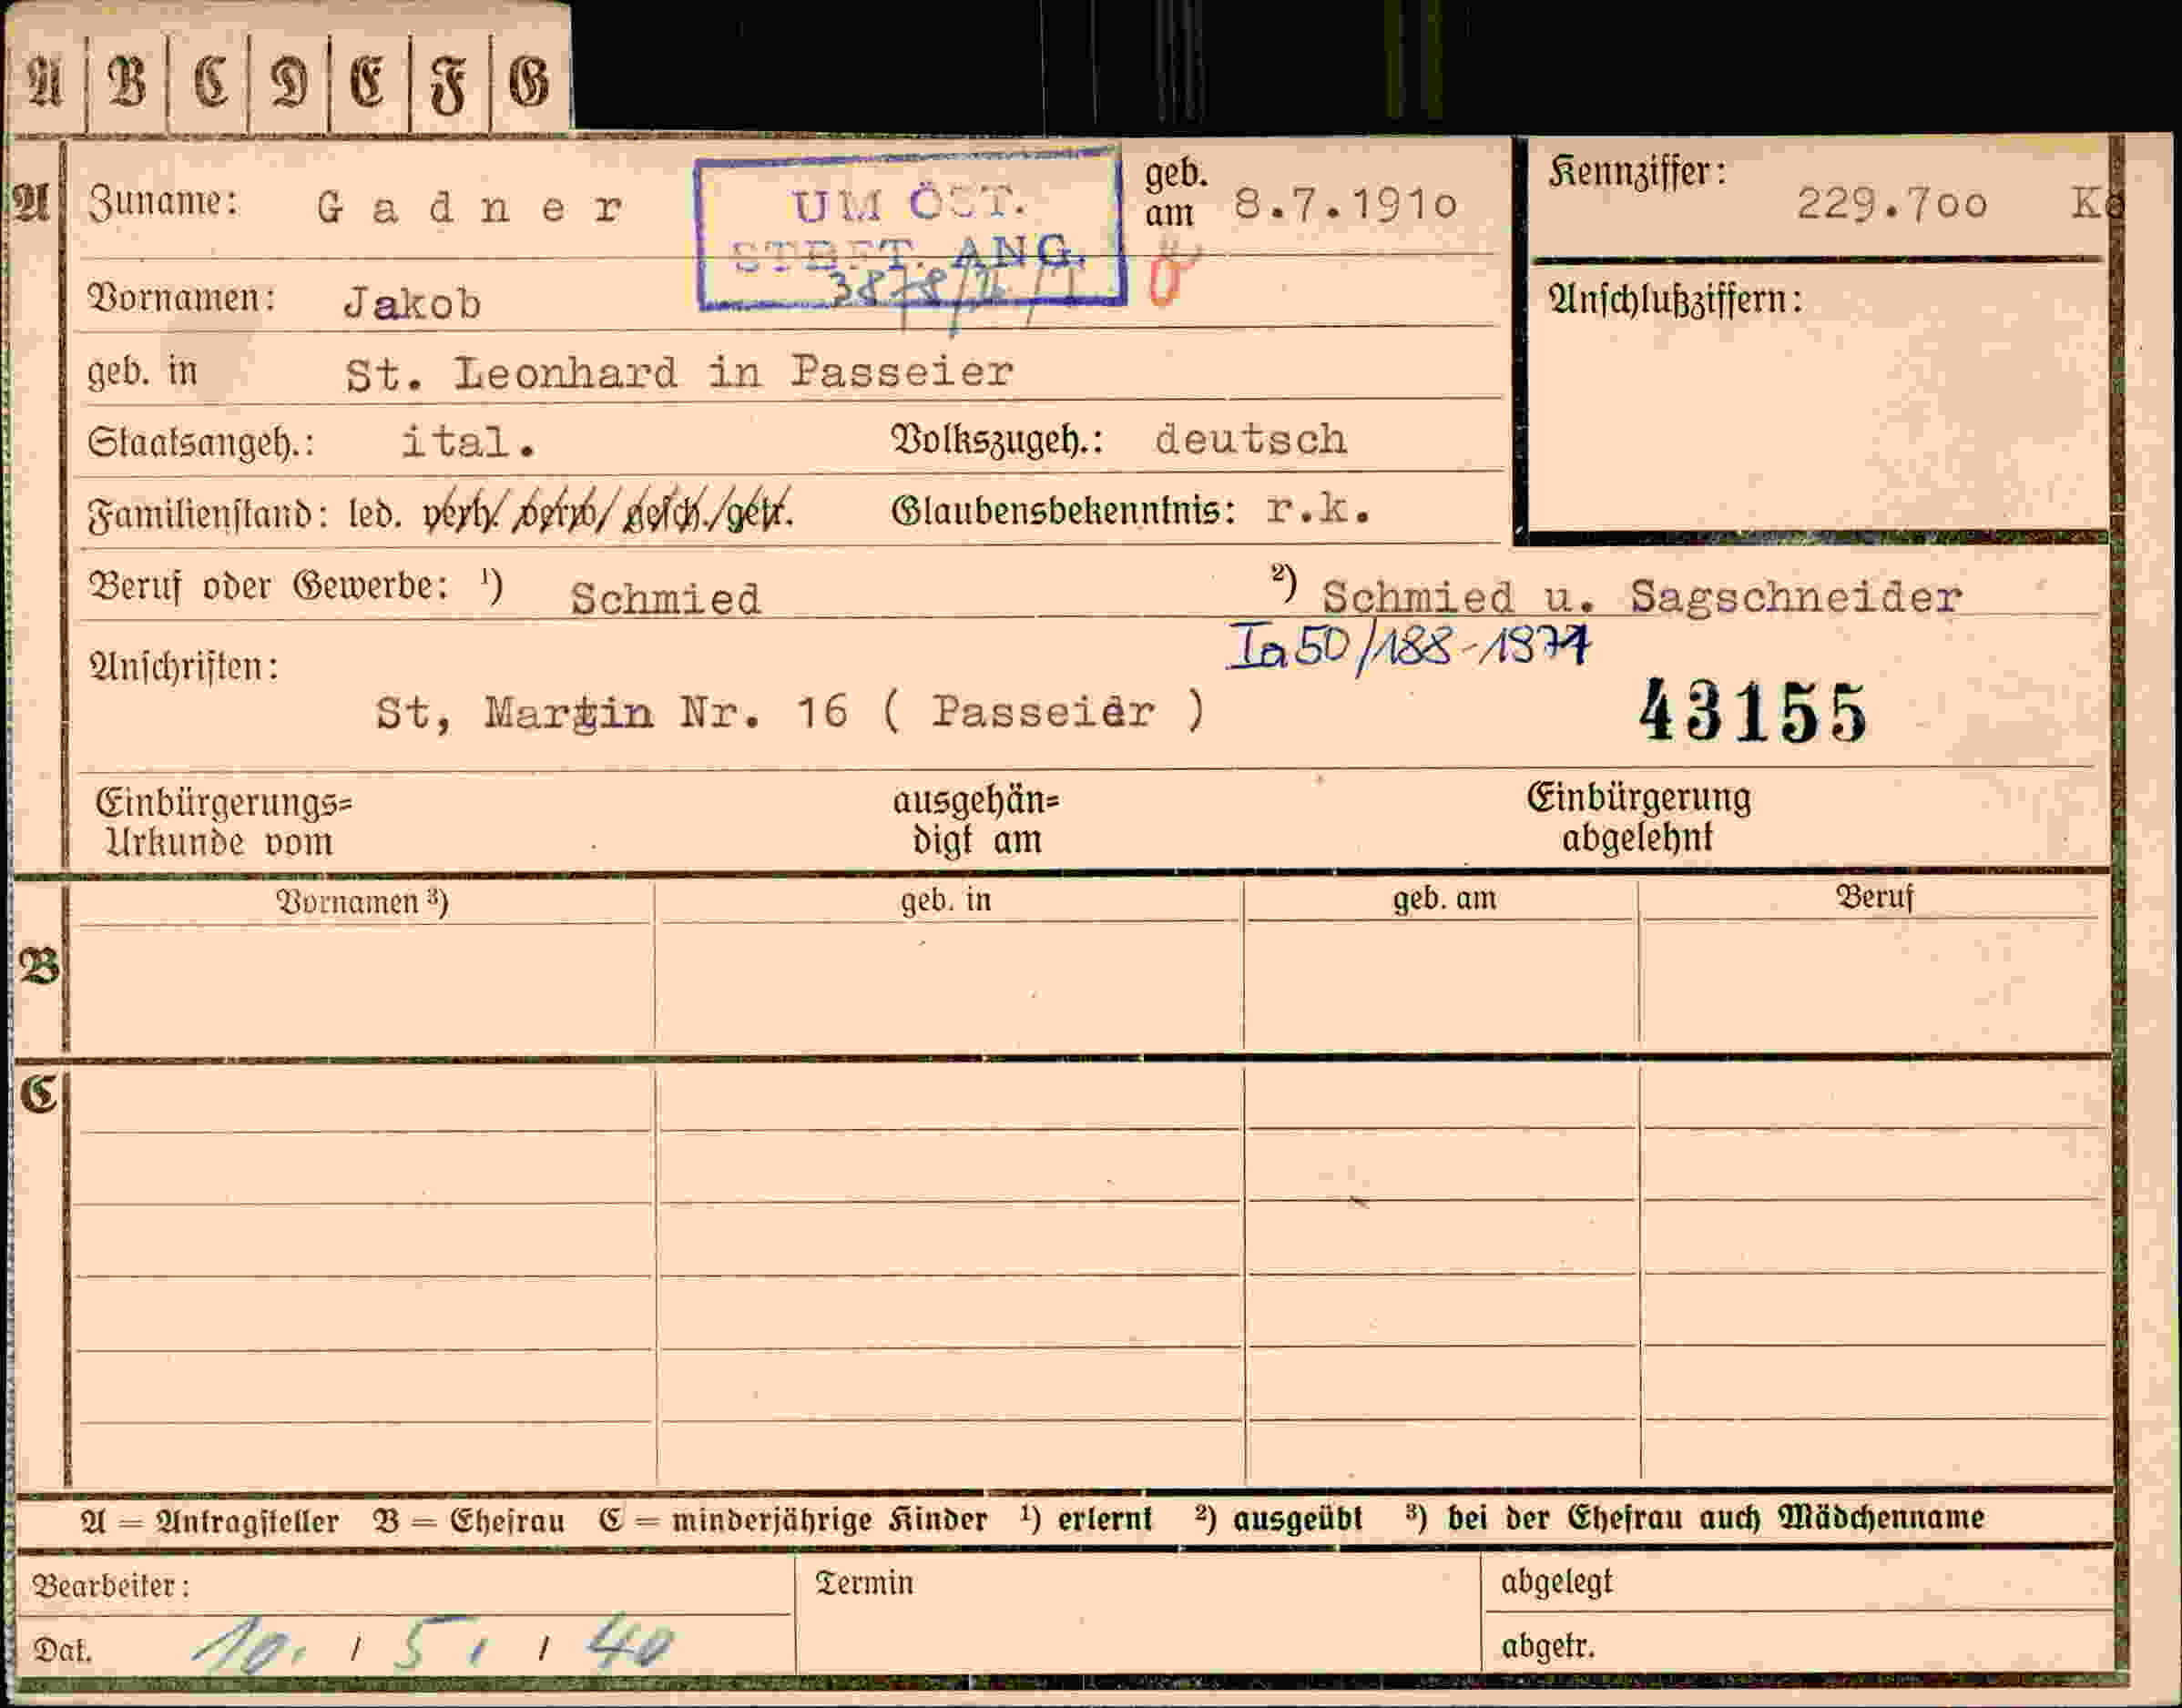 A B C D E F G
A Zuname: Gadner UM ÖST. geb. am 8.7.1910 Kennziffer: 229.700
STBFT. ANG.
Vornamen: Jakob Anschlußziffern:
geb. in St. Leonhard in Passeier
Staatsangeh.: ital. Volkszugeh.: deutsch
Familienstand: led. verh./verw./gesch./getr. Glaubensbekenntnis: r.k.
Beruf oder Gewerbe: ¹) Schmied ²) Schmied u. Sagschneider
Anschriften: Ia50/188-1971
St, Martin Nr. 16 ( Passeier ) 43155
Einbürgerungs= ausgehän= Einbürgerung
Urkunde vom digt am abgelehnt
Vornamen ³) geb. in geb. am Beruf
B
C
A = Antragsteller B = Ehefrau C = minderjährige Kinder ¹) erlernt ²) ausgeübt ³) bei der Ehefrau auch Mädchenname
Bearbeiter: Termin abgelegt
Dat. 10. / 5. / 40 abgetr.